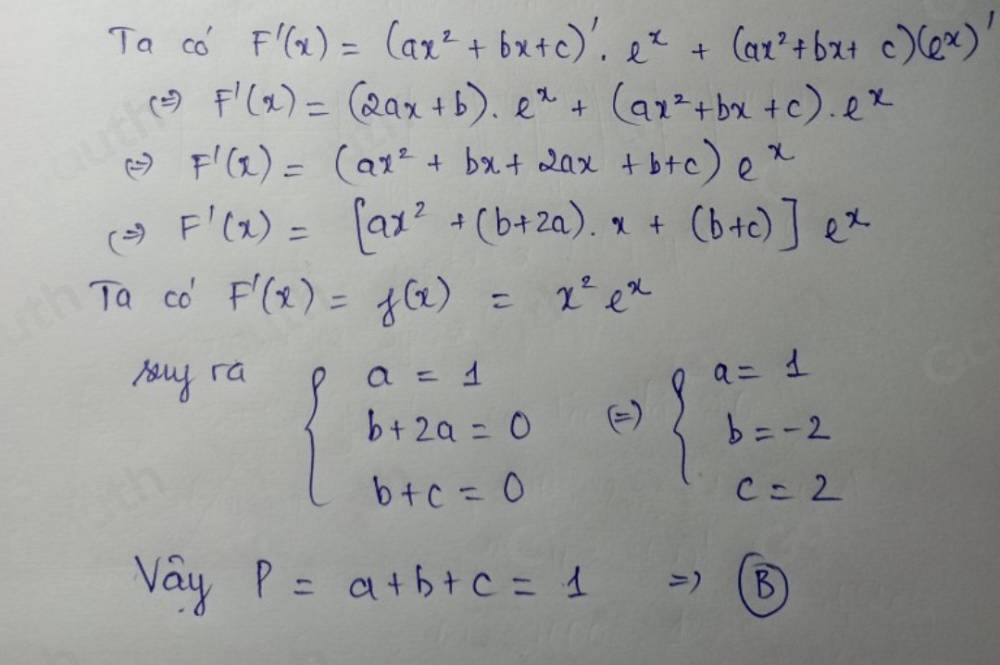 Ta có F'(x) = (ax² + bx + c)'. eˣ + (ax² + bx + c)(eˣ)'
(=) F'(x) = (2ax + b). eˣ + (ax² + bx + c). eˣ
(=) F'(x) = (ax² + bx + 2ax + b + c) eˣ
(=) F'(x) = [ax² + (b+2a). x + (b+c)] eˣ
Ta có F'(x) = f(x) = x² eˣ
suy ra { a = 1 (=) { a = 1
b + 2a = 0 b = -2
b + c = 0 c = 2
Vậy P = a + b + c = 1 => B